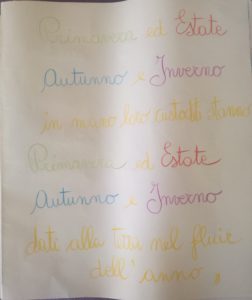 Primavera ed Estate
Autunno e Inverno
in mano loro custoditi stanno
Primavera ed Estate
Autunno e Inverno
dati alla Terra nel fluir
dell'anno "